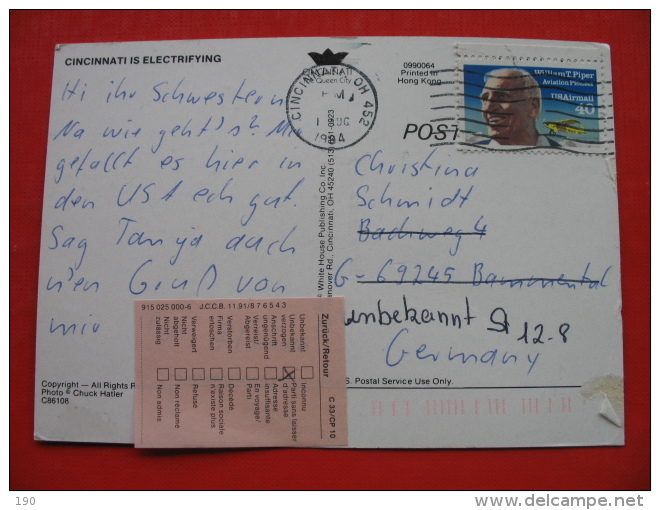 CINCINNATI IS ELECTRIFYING
Hi ihr Schwestern
Na wie geht's? Mir
gefällt es hier in
den USA echt gut.
Sag Tanja auch
n'en Gruß von
mir
Copyright — All Rights R
Photo © Chuck Hatler
C86108
CINCINNATI
Queen City
CINCINNATI, OH 452
PM
1 AUG
1994
0990064
Printed in
Hong Kong
William T. Piper
Aviation Pioneer
USAirmail
40
POST
© White House Publishing Co. Inc.
Hanover Rd., Cincinnati, OH 45240 (513)
Christina
Schmidt
Bachweg 4
G-69245 Bammental
unbekannt
12-8
Germany
S. Postal Service Use Only.
915 025 000-6 J.C.C.B. 11.91/8 7 6 5 4 3
Zurück/Retour
C 33/CP 10
Unbekannt Inconnu
Unbekannt verzogen Parti sans laisser d'adresse
Anschrift ungenügend Adresse insuffisante
Verreist/ Abgereist En voyage/ Parti
Verstorben Décédé
Firma erloschen Raison sociale n'existe plus
Verweigert Refusé
Nicht abgeholt Non réclamé
Nicht zulässig Non admis
190
www.delcampe.net